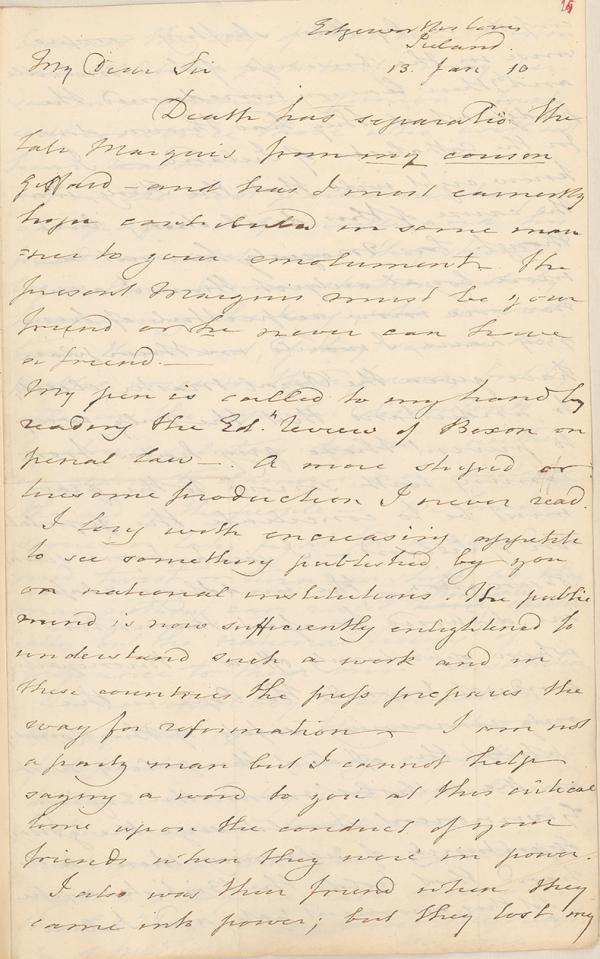 15
Edgeworthstown
Ireland.
My Dear Sir 13. Jan 10
Death has separated the
late Marquis from my cousin
Giffard – and has I most earnestly
hope contributed in some man
=ner to your emolument. The
present Marquis must be your
friend or he never can have
a friend. —
My pen is called to my hand by
reading the Edn. review of Bexon on
penal law —. A more stupid or
tiresome production I never read.
I long with encreasing appetite
to see something published by you
on national institutions. The public
mind is now sufficiently enlightened to
understand such a work and in
these countries the press prepares the
way for reformation — I am not
a party man but I cannot help
saying a word to you at this critical
time upon the conduct of your
friends when they were in power.
I also was their friend when they
came into power; but they lost my